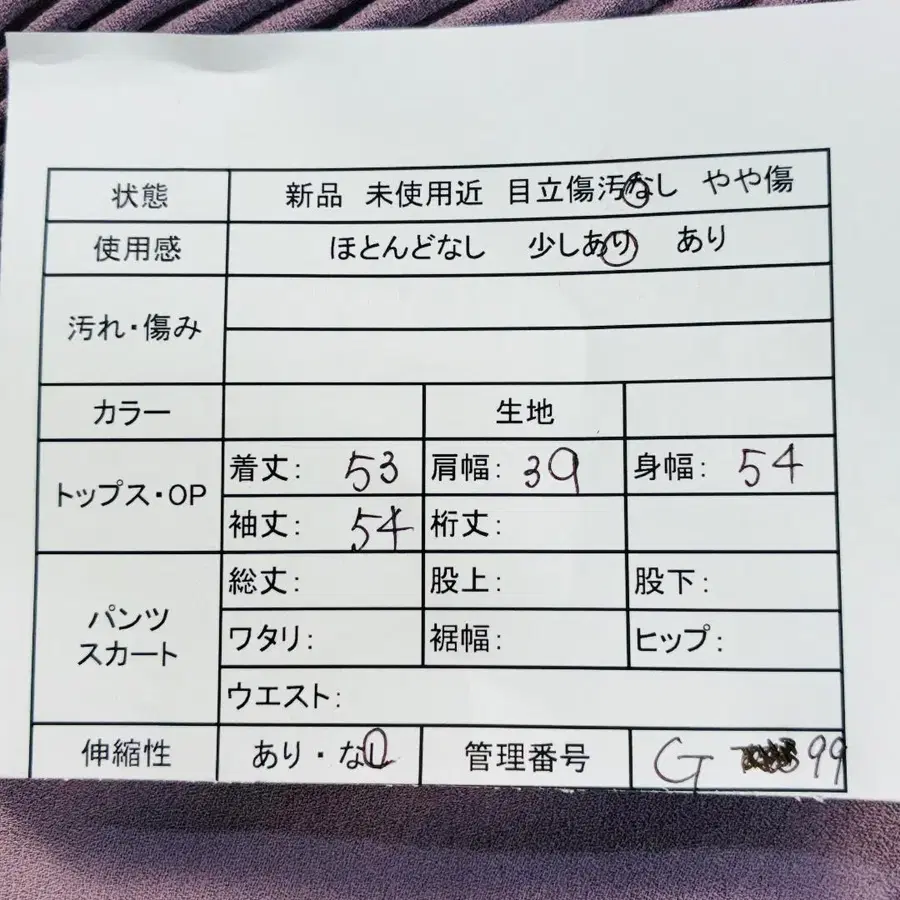 状態 新品 未使用近 目立傷汚なし やや傷
使用感 ほとんどなし 少しあり あり
汚れ・傷み
カラー 生地
トップス・OP 着丈: 53 肩幅: 39 身幅: 54
袖丈: 54 裄丈:
パンツ スカート 総丈: 股上: 股下:
ワタリ: 裾幅: ヒップ:
ウエスト:
伸縮性 あり・なし 管理番号 G 99